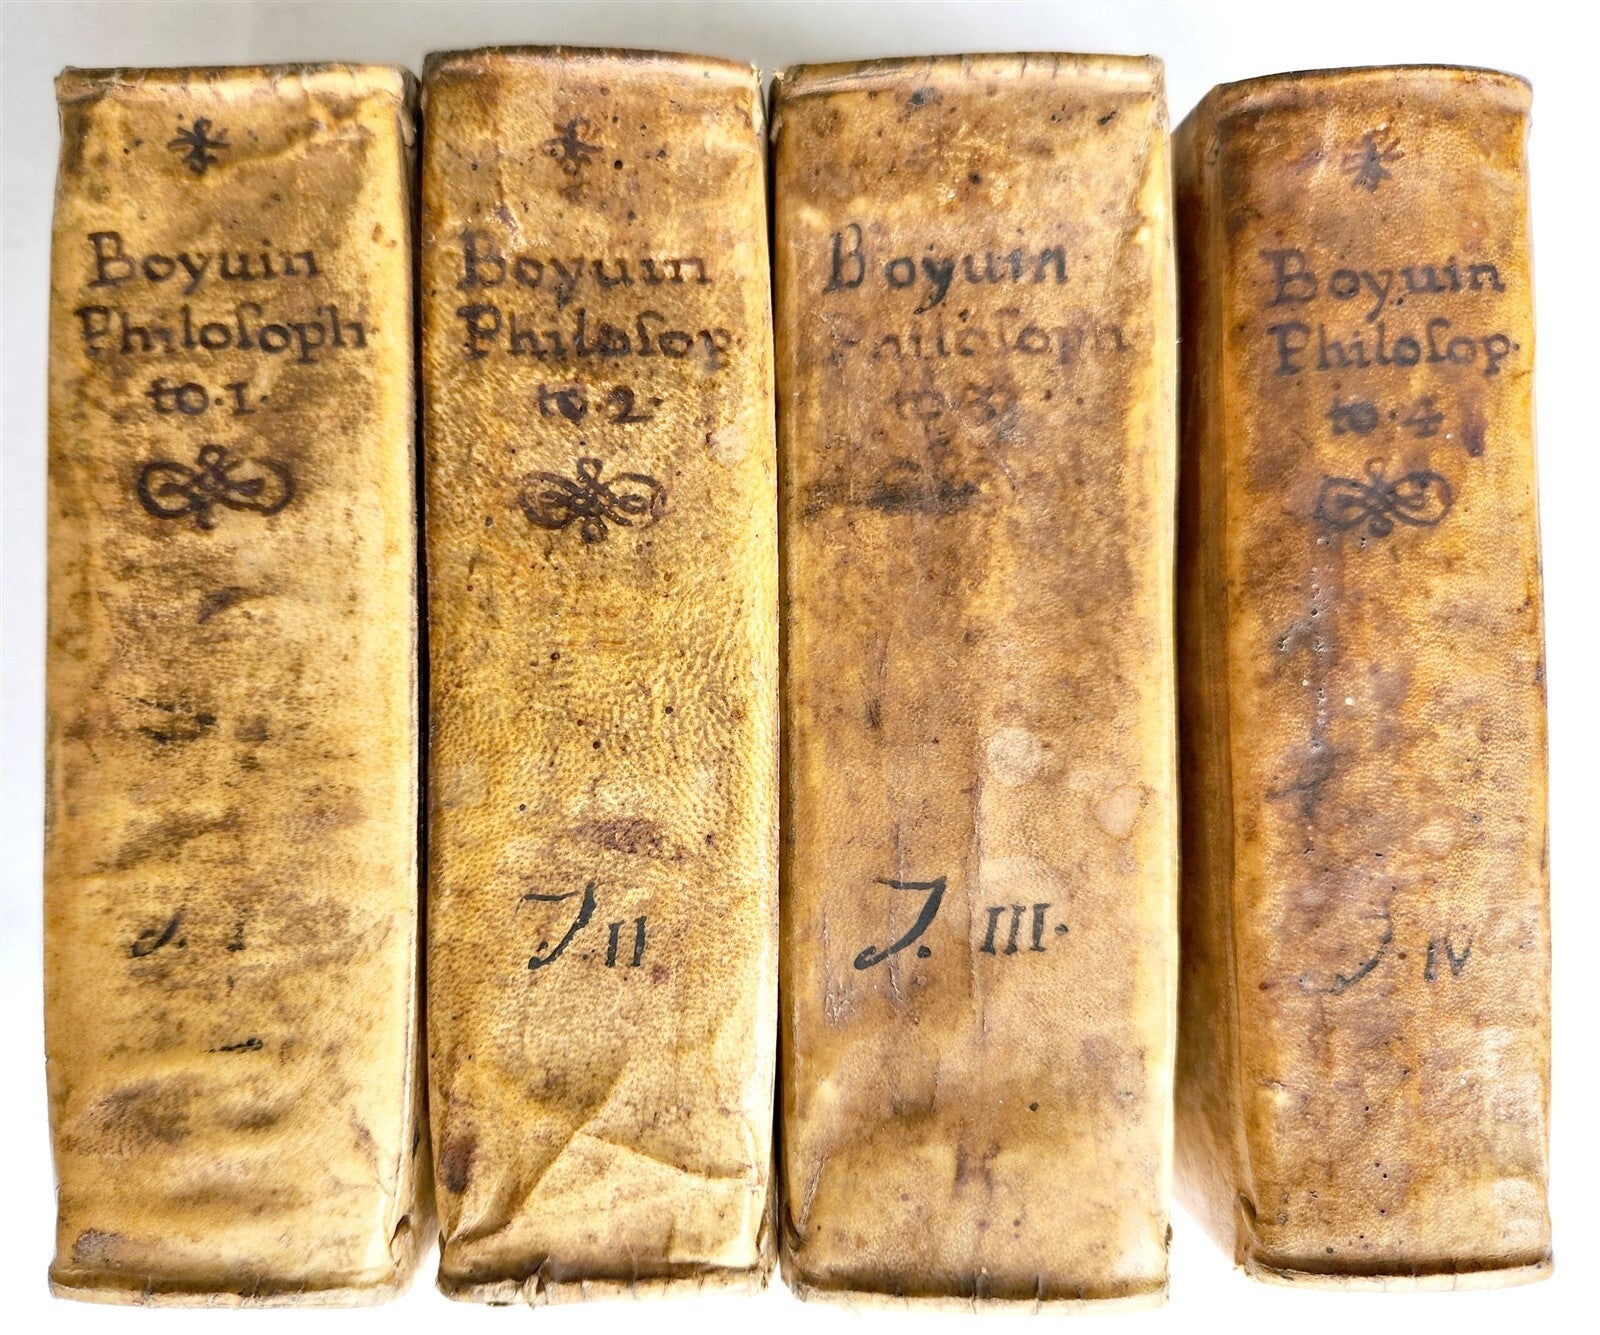 Boyuin
Philoſoph
to. 1.
J. I
Boyuin
Philoſop.
to. 2.
J. II
Boyuin
Philoſoph
to 3
J. III.
Boyuin
Philoſop.
to. 4
J. IV